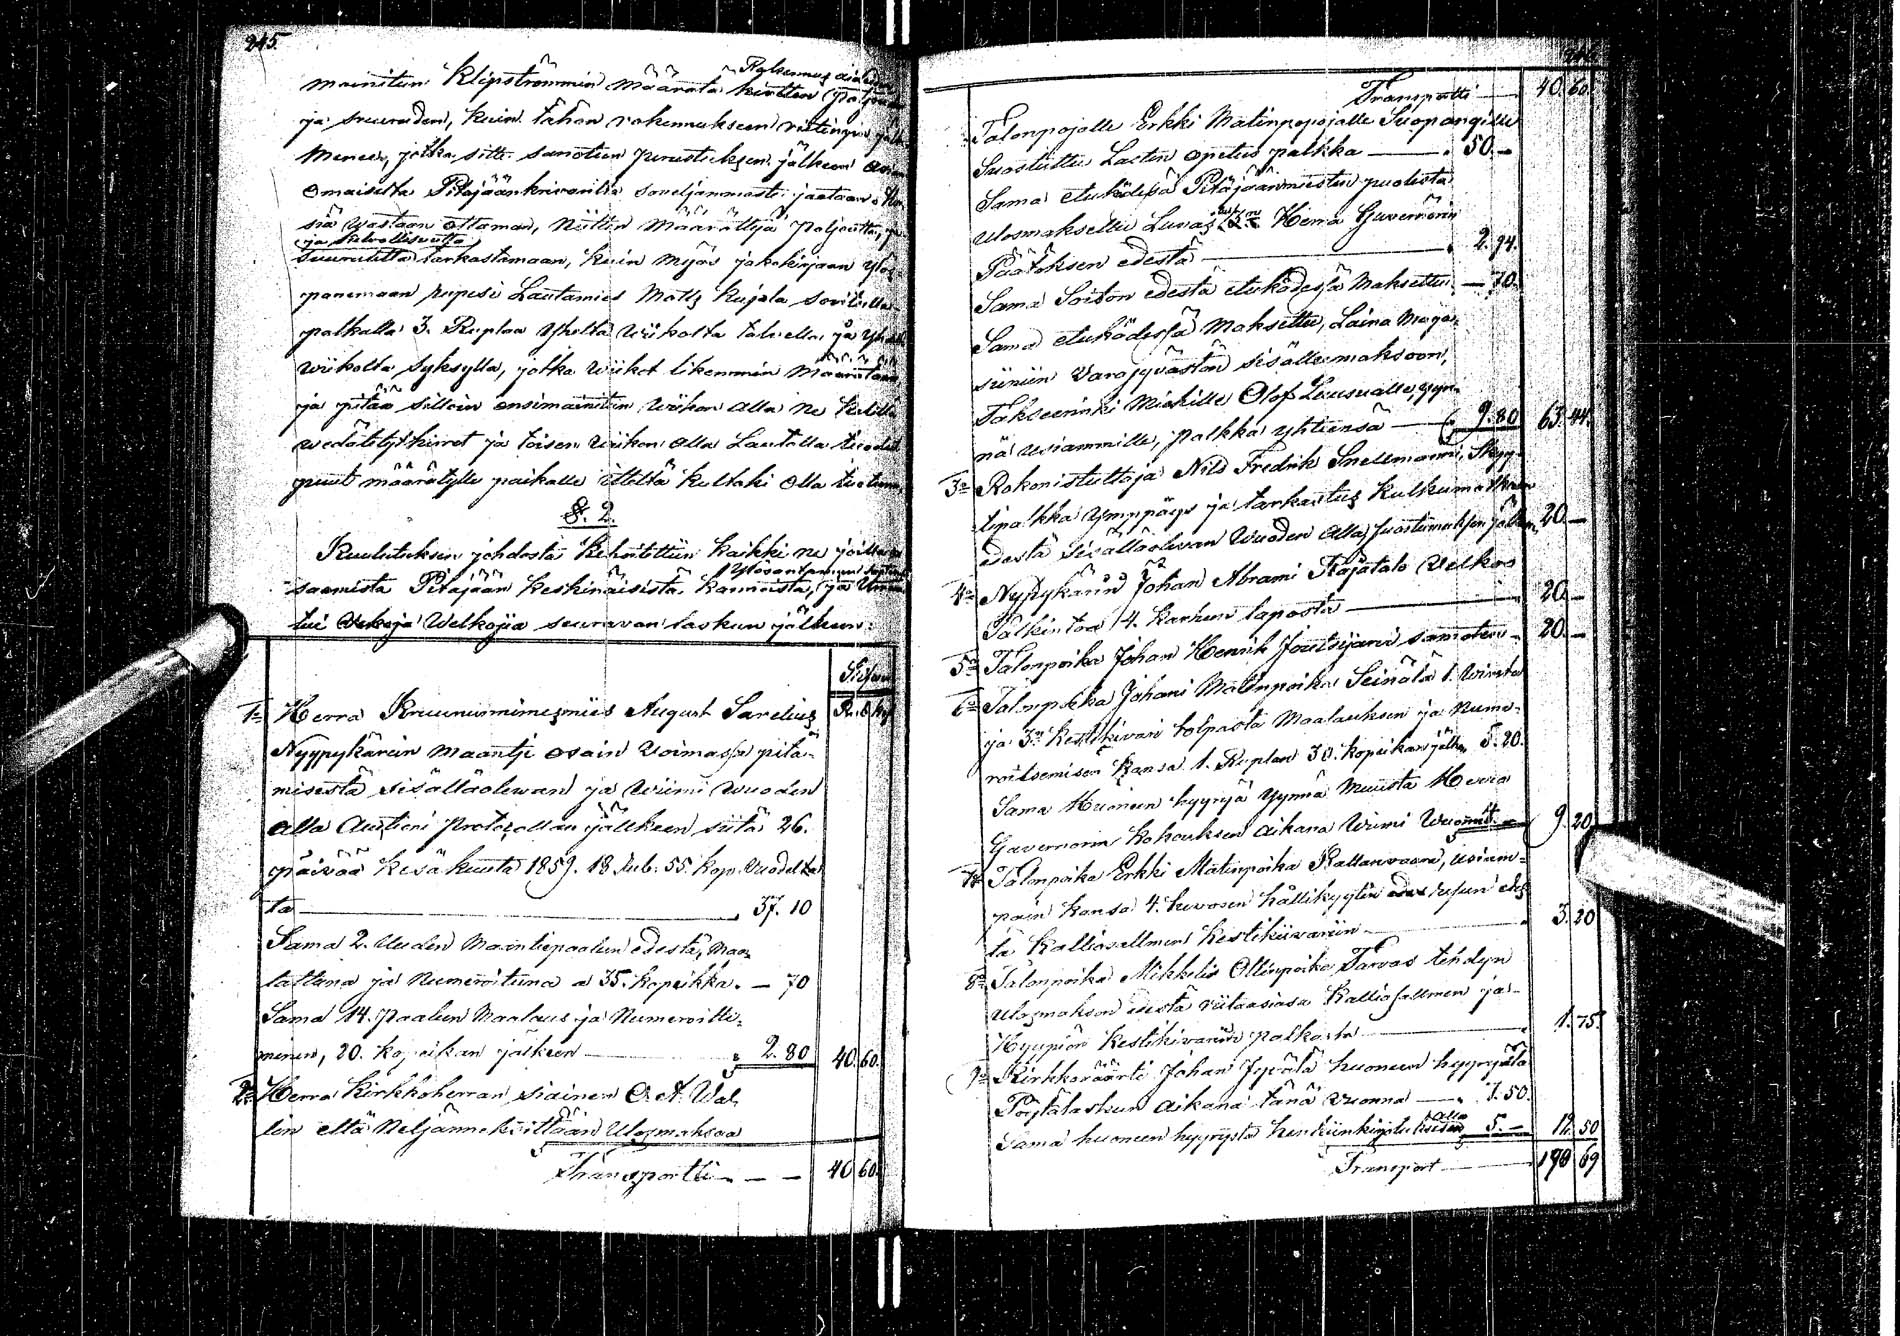 245.
mainitun Klipströmmin määrätä hirtten paljouden
Rakennus aineden
ja suuruden, kuin tähän rakennukseen
menee, jotka sitte sanotun perustuksen jälkeen
omaisesta Pitäjäänkrivarilta soveljammasti jaetaan.
siä wastaan ottaman, näitten määrättyjä paljoutta, ja
ja kelvollisuutta
suuruutta tarkastamaan, kuin myös jakokirjaan ylös
panemaan rupesi Lautamies Matts Kujala sovitulla
palkalla 3. Ruplaa yheltä wiikolta talvella ja yheltä
wiikolta syksyllä, jotka wiikot likemmin määrätään,
ja pitää silloin ensimainitun wiikon alla ne kelillä
wedätetyt hirret ja toisen wiikon alla Lautalla tuodut
puut määrätylle paikalle itteltä kultaki olla tuotuna,
§. 2.
Kuulutuksen johdosta kehoitettiin kaikki ne joilla on
saamista Pitäjään keskinäisistä kannoista, ja
Ylösantamaan
tui Welkojia seuravan laskun jälkeen:
Ru. kop
1o Herra Kruununnimesmies August Sarelius
Nyypykärein maantje osain Voimassa pitä-
misestä sisälläolewan ja Wiimi wuoden
alla Auctioni Protocollan jälkeen siitä 26.
päivää kesäkuusta 1859. 18 Rub. 55. kop. Vuodelta
ta 37. 10
Sama 2. Uuden Maantiepaalun edestä, Maa-
lattuna ja Numeroituna a 35. kopeikka. — 70
Sama 14. paalun Maalaus ja Numeroitte-
minen, 20. kopeikan jälkeen — 2. 80 40. 60.
2o Herra Kirkkoherran siainen C. A. Wal-
lin että Neljännekisittään Ulosmaksaa
Transportti — — — 40 60.
Transportti — 40. 60.
Talonpojalle Erkki Matinpojalle Suopangille
Suostuttu Lasten opetus palkka — 50. —
Sama etukädessä Pitäjäänmiesten puolesta
Ulosmaksettu Lunas Herra Guvernörin
Päätöksen edestä — 2. 94.
Sama Soiton edestä etukädessä maksettu — 70.
Sama etukädessä maksettu, Laina Maga-
siiniin Varajyvästön sisällemaksoon,
Takleerinki Miehille Olof Luusualle, ynn-
nä usiammille, palkka yhteensä — 9. 80 63. 44.
3o Rokonistuttaja Nils Fredrik Snellmanni, Styy-
lipalkka ympäys ja tarkastus kulkumatkain
edestä sisälläolevan Wuoden alla, suostumuksen jälkeen 20 —
4o Nypykäriin Johan Abrami Räjätalo Velkoo
Palkintoa 4. Karhun taposta — 20. —
5o Talonpoika Johan Henrik Joutsijärvi samaten — 20. —
6o Talonpoika Johani Matinpoika Seinälä 1. Wirsta
ja 3n Kestikivari tolpasta Maalauksen ja Nume-
roitsemisen kansa 1. Ruplan 30. kopeikan jälkeen 5. 20.
Sama Huoneen hyyryä ynnä muista Herra
Guvernörin kokouksen aikana Wiimi Wuonna 4. — 9. 20
7o Talonpoika Erkki Matinpoika Kallanvaara, usiam-
pain kansa 4. hevosen hållikyytin
tä Kalliosallmen Kestikiivariin — 3. 20
8o Talonpoika Mikkelis Ollinpoika Tarvas tehdyn
Ulosmakson edestä riitaasiasa Kalliosallmen ja
Hyypiön Kestikivarin palkasta — 1. 75.
9o Kirkkoväärti Johan Jyvälä huoneen hyyryllä
Pöytälaskun aikana tänä vuonna — 7. 50.
Sama huoneen hyyrystä henkiinkirjotuksen alla 5. — 12. 50
Transport — 190 69